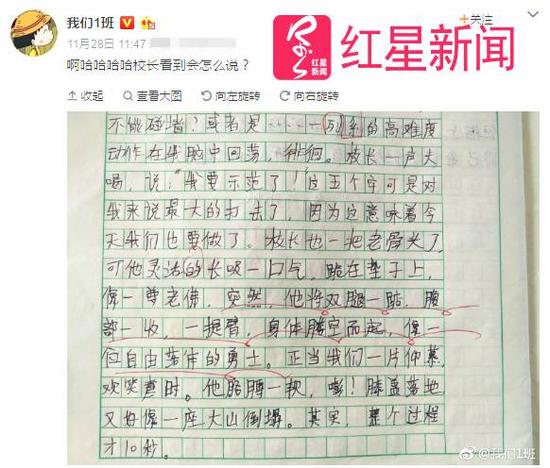 我们1班
11月28日 11:47
+关注
红星新闻
红星新闻
啊哈哈哈哈校长看到会怎么说?
收起 查看大图 向左旋转 向右旋转
不能碰墙?或者是……一列系的高难度
动作在我脑中回荡,徘徊。校长一声大
喝,说:“我要示范了!”这五个字可是对
我来说最大的打击了,因为这意味着今
天我们也要做了。校长也一把老骨头了,
可他灵活的长吸一口气,跪在垫子上,
像一尊老佛,突然,他将双腿一踮,腹
部一收,一提臂,身体腾空而起,像一
位自由落体的勇士。正当我们一片仰慕
欢笑意时。他胳膊一软,嘭!膝盖落地
又好像一座大山倒塌。其实,整个过程
才10秒。
@我们1班